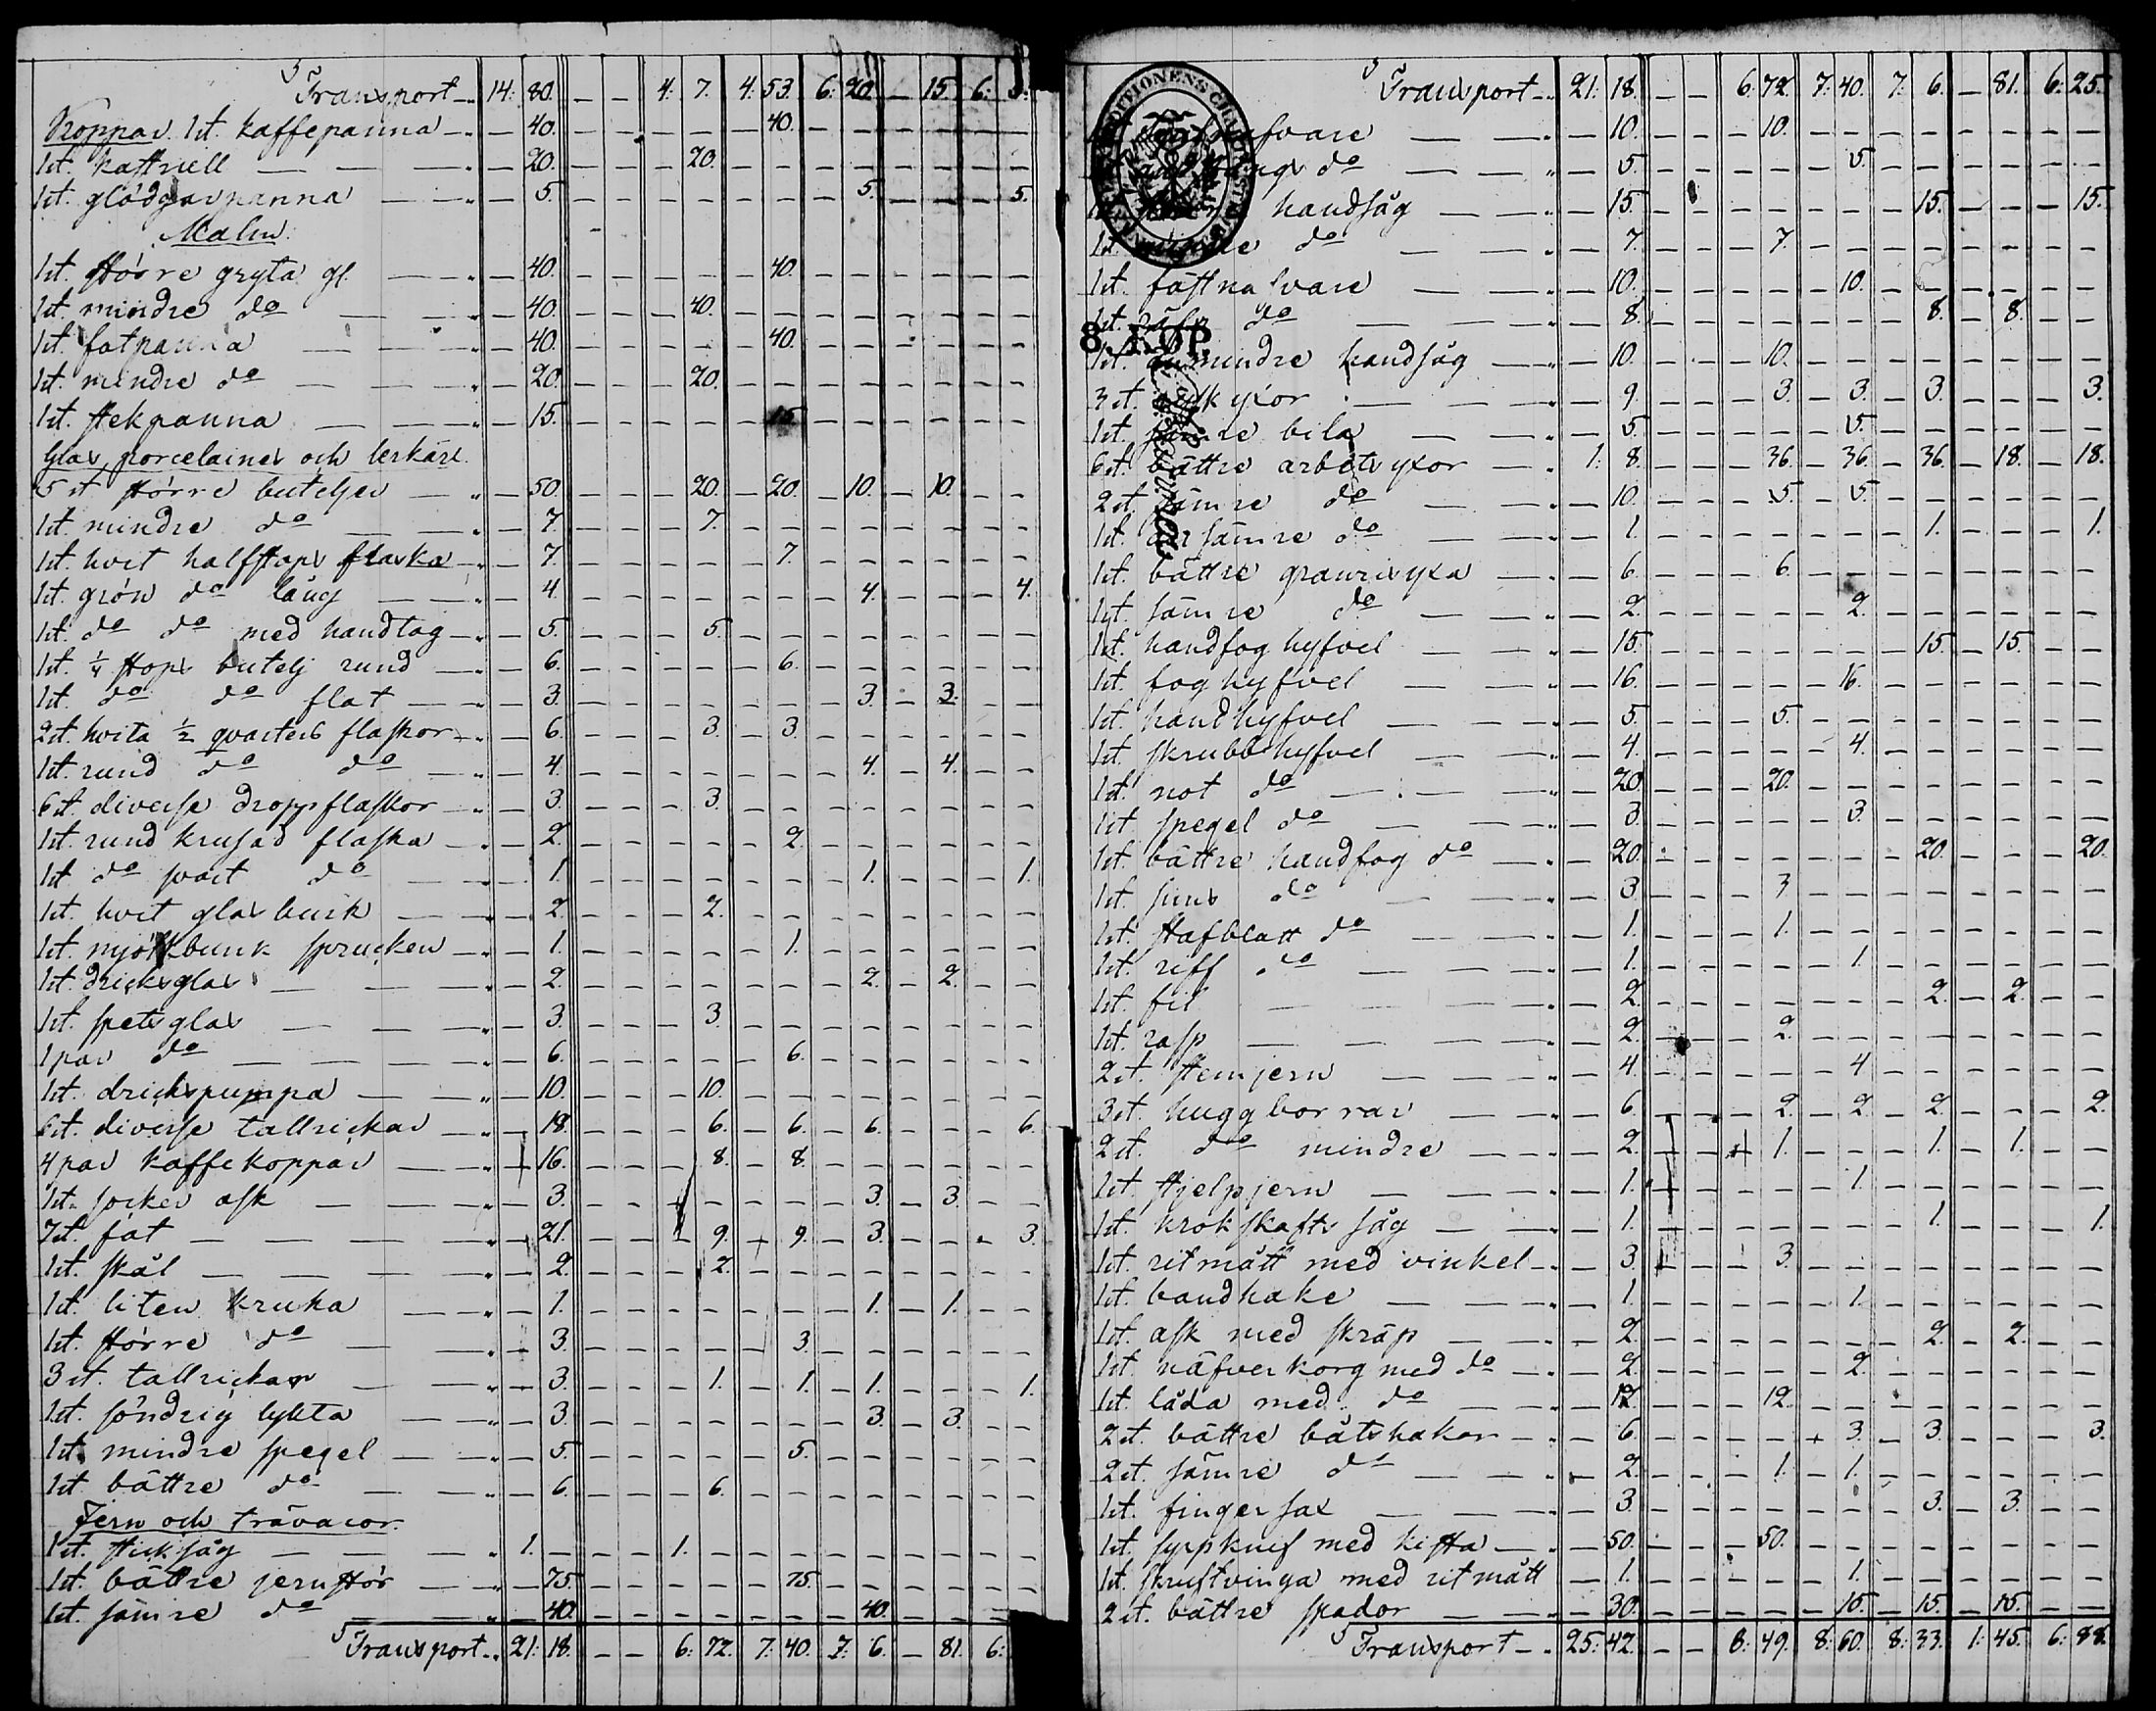 Transport 14: 80. — — 4: 7. 4: 53. 6: 20. — 15. 6: 5.
Koppar. 1 st. kaffepanna — 40. — — — — — 40. — — — — — —
1 st. kastrull — 20. — — — 20. — — — — — — — —
1 st. glödgarpanna — 5. — — — — — — — 5. — — — 5.
Malm.
1 st. större gryta gl. — 40. — — — — — 40. — — — — — —
1 st. mindre do — 40. — — — 40. — — — — — — — —
1 st. fotpanna — 40. — — — — — 40. — — — — — —
1 st. mindre do — 20. — — — 20. — — — — — — — —
1 st. stekpanna — 15. — — — — — 15. — — — — — —
Glas, porcelainer och lerkäril.
5 st större buteljer — 50. — — — 20. — 20. — 10. — 10. — —
1 st. mindre do — 7. — — — 7. — — — — — — — —
1 st. hvit halfstops flaska — 7. — — — — — 7. — — — — — —
1 st. grön do lång — 4. — — — — — — — 4. — — — 4.
1 st. do do med handtag — 5. — — — 5. — — — — — — — —
1 st. 1/4 stops butelj rund — 6. — — — — — 6. — — — — — —
1 st. do do flat — 3. — — — — — — — 3. — 3. — —
2 st. hvita 1/2 qvarters flaskor — 6. — — — 3. — 3. — — — — — —
1 st. rund do do — 4. — — — — — — — 4. — 4. — —
6 st. diverse droppflaskor — 3. — — — 3. — — — — — — — —
1 st. rund krusad flaska — 2. — — — — — 2. — — — — — —
1 st do svart do — 1. — — — — — — — 1. — — — 1.
1 st. hvit glasburk — 2. — — — 2. — — — — — — — —
1 st. mjölkbunk sprucken — 1. — — — — — 1. — — — — — —
1 st. dricksglas — 2. — — — — — — — 2. — 2. — —
1 st. spetsglas — 3. — — — 3. — — — — — — — —
1 par do — 6. — — — — — 6. — — — — — —
1 st. drickspumpa — 10. — — — 10. — — — — — — — —
6 st. diverse tallrickar — 18. — — — 6. — 6. — 6. — — — 6.
4 par kaffekoppar — 16. — — — 8. — 8. — — — — — —
1 st. socker ask — 3. — — — — — — — 3. — 3. — —
7 st. fat — 21. — — — 9. — 9. — 3. — — — 3.
1 st. skål — 2. — — — 2. — — — — — — — —
1 st. liten kruka — 1. — — — — — — — 1. — 1. — —
1 st. större do — 3. — — — — — 3. — — — — — —
3 st. tallrickar — 3. — — — 1. — 1. — 1. — — — 1.
1 st. söndrig lykta — 3. — — — — — — — 3. — 3. — —
1 st. mindre spegel — 5. — — — — — 5. — — — — — —
1 st. bättre do — 6. — — — 6. — — — — — — — —
Jern och trävaror.
1 st. sticksåg 1. — — — 1. — — — — — — — — —
1 st. bättre jernstör — 75. — — — — — 75. — — — — — —
1 st. sämre do — 40. — — — — — — — 40. — — — —
Transport 21: 18. — — 6: 72. 7: 40. 7: 6. — 81. 6:
Transport 21: 18. — — 6: 72. 7: 40. 7: 6. — 81. 6: 25.
— 10. — — — 10. — — — — — — — —
do — 5. — — — — — 5. — — — — — —
handsåg — 15. — — — — — — — 15. — — — 15.
1 st. mindre do — 7. — — — 7. — — — — — — — —
1 st. fästnafvare — 10. — — — — — 10. — — — — — —
1 st. do — 8. — — — — — — — 8. — 8. — —
8. KOP.
1 st. mindre handsåg — 10. — — — 10. — — — — — — — —
3 st. yxor — 9. — — — 3. — 3. — 3. — — — 3.
1 st. sämre bila — 5. — — — — — 5. — — — — — —
6 st. bättre arbetsyxor 1: 8. — — — 36. — 36. — 36. — 18. — 18.
2 st. sämre do — 10. — — — 5. — 5. — — — — — —
1 st. sämre do — 1. — — — — — — — 1. — — — 1.
1 st. bättre granrisyxa — 6. — — — 6. — — — — — — — —
1 st. sämre do — 2. — — — — — 2. — — — — — —
1 st. handfog hyfvel — 15. — — — — — — — 15. — 15. — —
1 st. foghyfvel — 16. — — — — — 16. — — — — — —
1 st. handhyfvel — 5. — — — 5. — — — — — — — —
1 st. skrubbhyfvel — 4. — — — — — 4. — — — — — —
1 st. not do — 20. — — — 20. — — — — — — — —
1 st spegel do — 3. — — — — — 3. — — — — — —
1 st. bättre handfog do — 20. — — — — — — — 20. — — — 20.
1 st. sims do — 3. — — — 3. — — — — — — — —
1 st. stafblatt do — 1. — — — 1. — — — — — — — —
1 st. riff do — 1. — — — — — 1. — — — — — —
1 st. fil — 2. — — — — — — — 2. — 2. — —
1 st. rasp — 2. — — — 2. — — — — — — — —
2 st. stemjern — 4. — — — — — 4. — — — — — —
3 st. huggborrar — 6. — — — 2. — 2. — 2. — — — 2.
2 st. do mindre — 2. — — — 1. — — — 1. — 1. — —
1 st. stjelpjern — 1. — — — — — 1. — — — — — —
1 st. krokskafts såg — 1. — — — — — — — 1. — — — 1.
1 st. ritmått med vinkel — 3. — — — 3. — — — — — — — —
1 st. bandhake — 1. — — — — — 1. — — — — — —
1 st. ask med skräp — 2. — — — — — — — 2. — 2. — —
1 st. näfverkorg med do — 2. — — — — — 2. — — — — — —
1 st. låda med do — 12. — — — 12. — — — — — — — —
2 st. bättre båtshakar — 6. — — — — — 3. — 3. — — — 3.
2 st. sämre do — 2. — — — 1. — 1. — — — — — —
1 st. finger sax — 3. — — — — — — — 3. — 3. — —
1 st. med kista — 50. — — — 50. — — — — — — — —
1 st. skruftvinga med ritmått — 1. — — — — — 1. — — — — — —
2 st. bättre spador — 30. — — — — — 15. — 15. — 15. — —
Transport 25: 42. — — 8: 49. 8: 60. 8: 33. 1: 45. 6: 88.